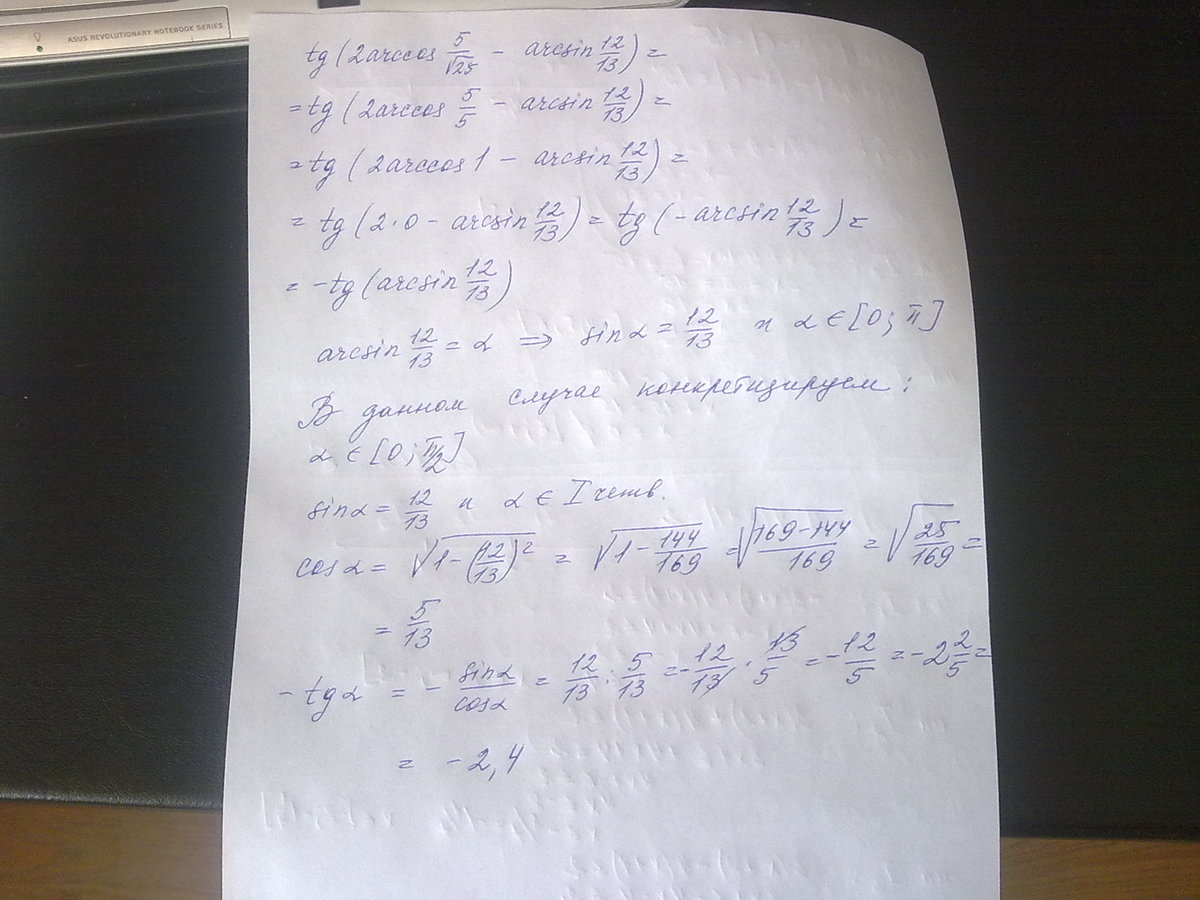 ASUS REVOLUTIONARY NOTEBOOK SERIES
tg(2arccos 5/√25 - arcsin 12/13) =
= tg(2arccos 5/5 - arcsin 12/13) =
= tg(2arccos1 - arcsin 12/13) =
= tg(2·0 - arcsin 12/13) = tg(-arcsin 12/13) =
= -tg(arcsin 12/13)
arcsin 12/13 = α ⇒ sinα = 12/13 и α ∈ [0; π]
В данном случае конкретицируем:
α ∈ [0; π/2]
sinα = 12/13 и α ∈ I четв.
cosα = √(1-(12/13)²) = √(1-144/169) = √((169-144)/169) = √(25/169) =
= 5/13
-tgα = - sinα/cosα = 12/13 : 5/13 = -12/13 · 13/5 = -12/5 = -2 2/5 =
= -2,4